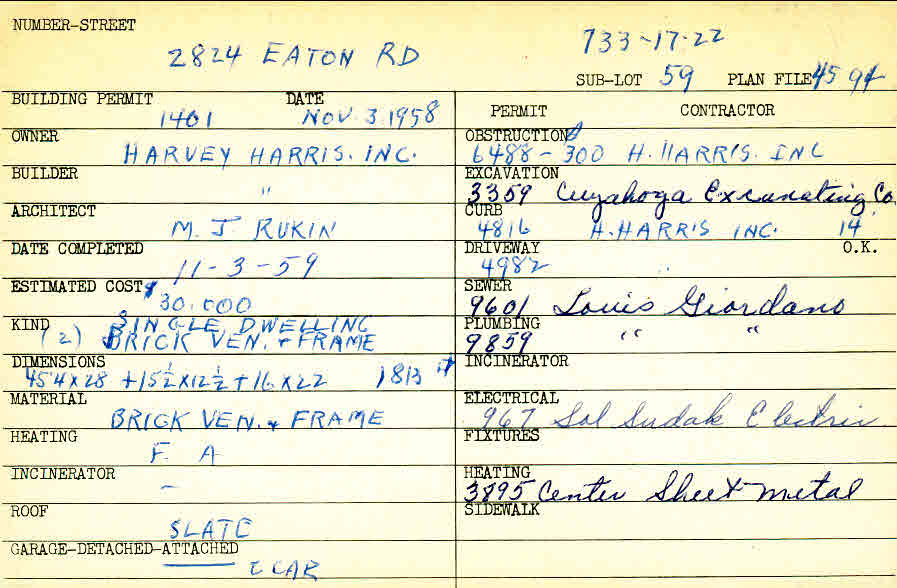 NUMBER-STREET
2824 EATON RD
733-17-22
SUB-LOT 59 PLAN FILE 4594
BUILDING PERMIT DATE
1401 NOV. 3. 1958
OWNER
HARVEY HARRIS. INC.
BUILDER
"
ARCHITECT
M. J RUKIN
DATE COMPLETED
11-3-59
ESTIMATED COST $
30.000
KIND SINGLE DWELLING
(2) BRICK VEN. + FRAME
DIMENSIONS
45'4 x 28 + 15½ x 12½ + 16 x 22 1813
MATERIAL
BRICK VEN. + FRAME
HEATING
F. A
INCINERATOR
-
ROOF
SLATE
GARAGE-DETACHED-ATTACHED
2 CAR
PERMIT CONTRACTOR
OBSTRUCTION
6488-300 H. HARRIS. INC
EXCAVATION
3359 Cuyahoga Excavating Co.
CURB
4816 H. HARRIS INC. 14
DRIVEWAY O.K.
4982 "
SEWER
9601 Louis Giordano
PLUMBING
9859 " "
INCINERATOR
ELECTRICAL
967 Sol Sudak Electric
FIXTURES
HEATING
3895 Center Sheet Metal
SIDEWALK